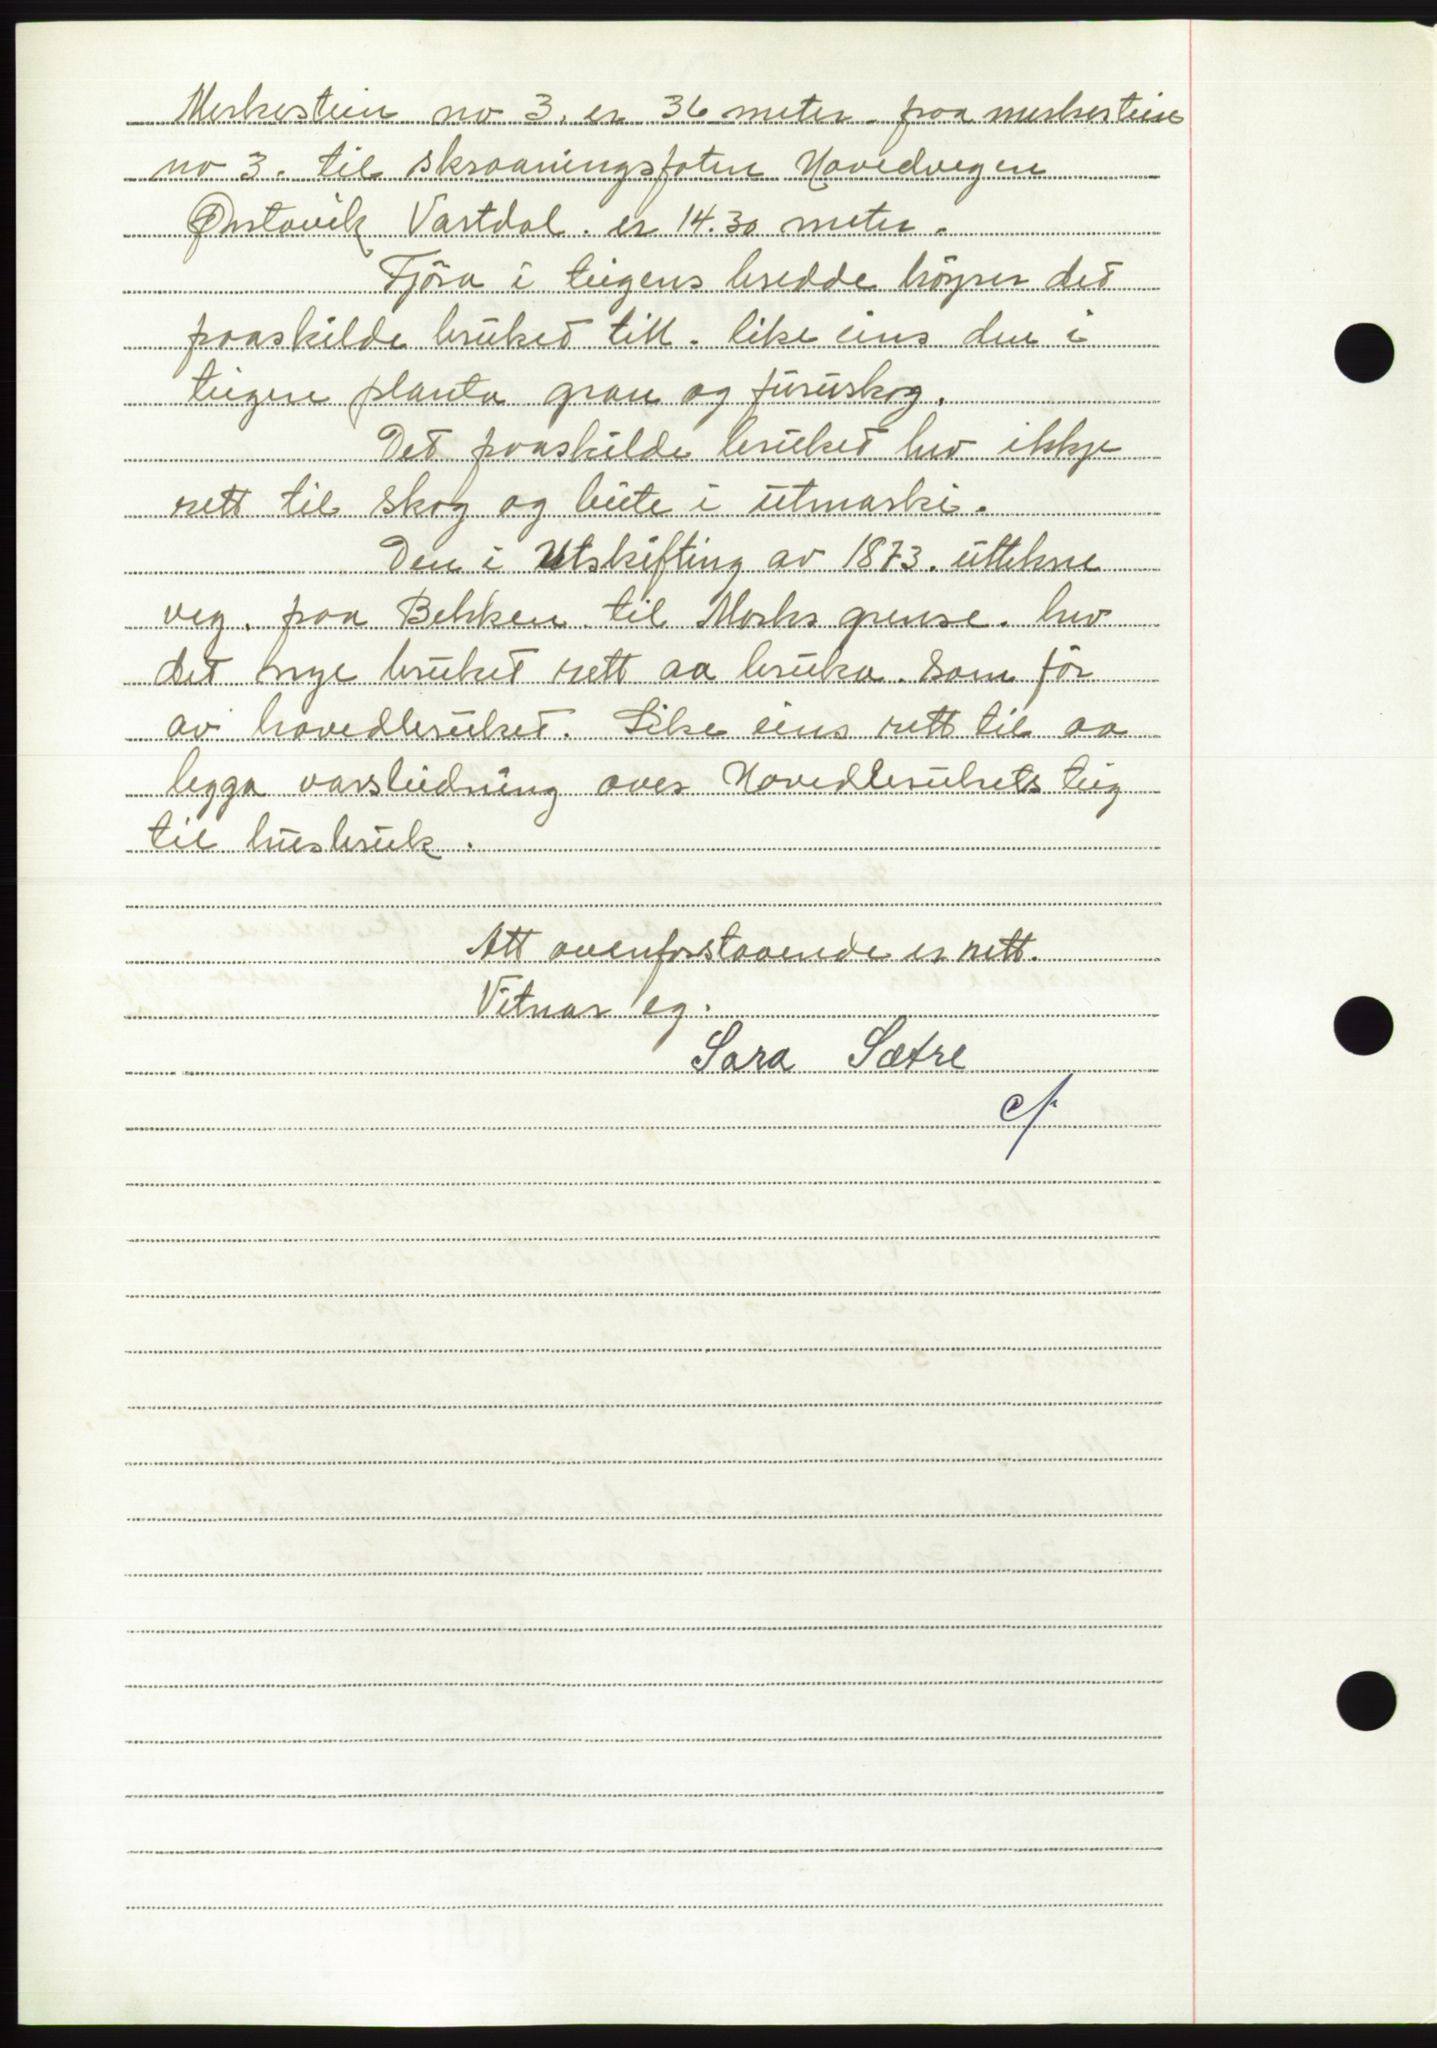 Merkestein no 3. er 36 meter. fraa merkestein
no 3. til skraaningsfoten Hovedvegen
Ørstavik Vartdal. er 14.30 meter.
Fjöra i teigens bredde höyrer det
fraaskilde bruket till. like eins den i
teigen planta gran og furuskog.
Det fraaskilde bruket hev ikkje
rett til skog og beite i utmarki.
Den i Utskifting av 1873. uttekne
veg. fraa Bekken til Morks grense. hev
det nye bruket rett aa bruka. som för
av hovedbruket. Like eins rett til aa
legga vassleidning over Hovedbrukets teig
til husbruk.
Att ovenforstaaende er rett.
Vitnar eg.
Sara Sætre